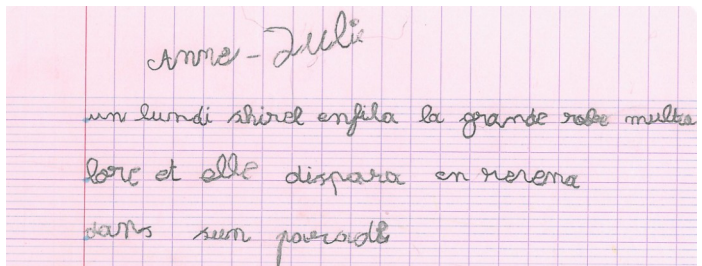 Anne-Julie
un lundi shirel enfila la grande robe multico
lore et elle dispara en rerena
dans sun parade